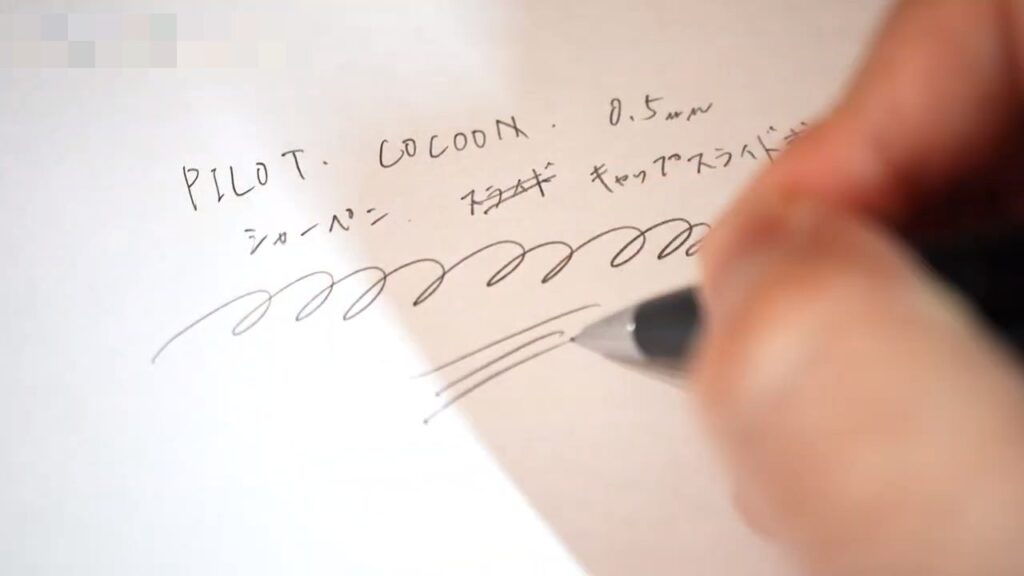 PILOT. COCOON. 0.5mm
シャーペン. スライド キャップスライド